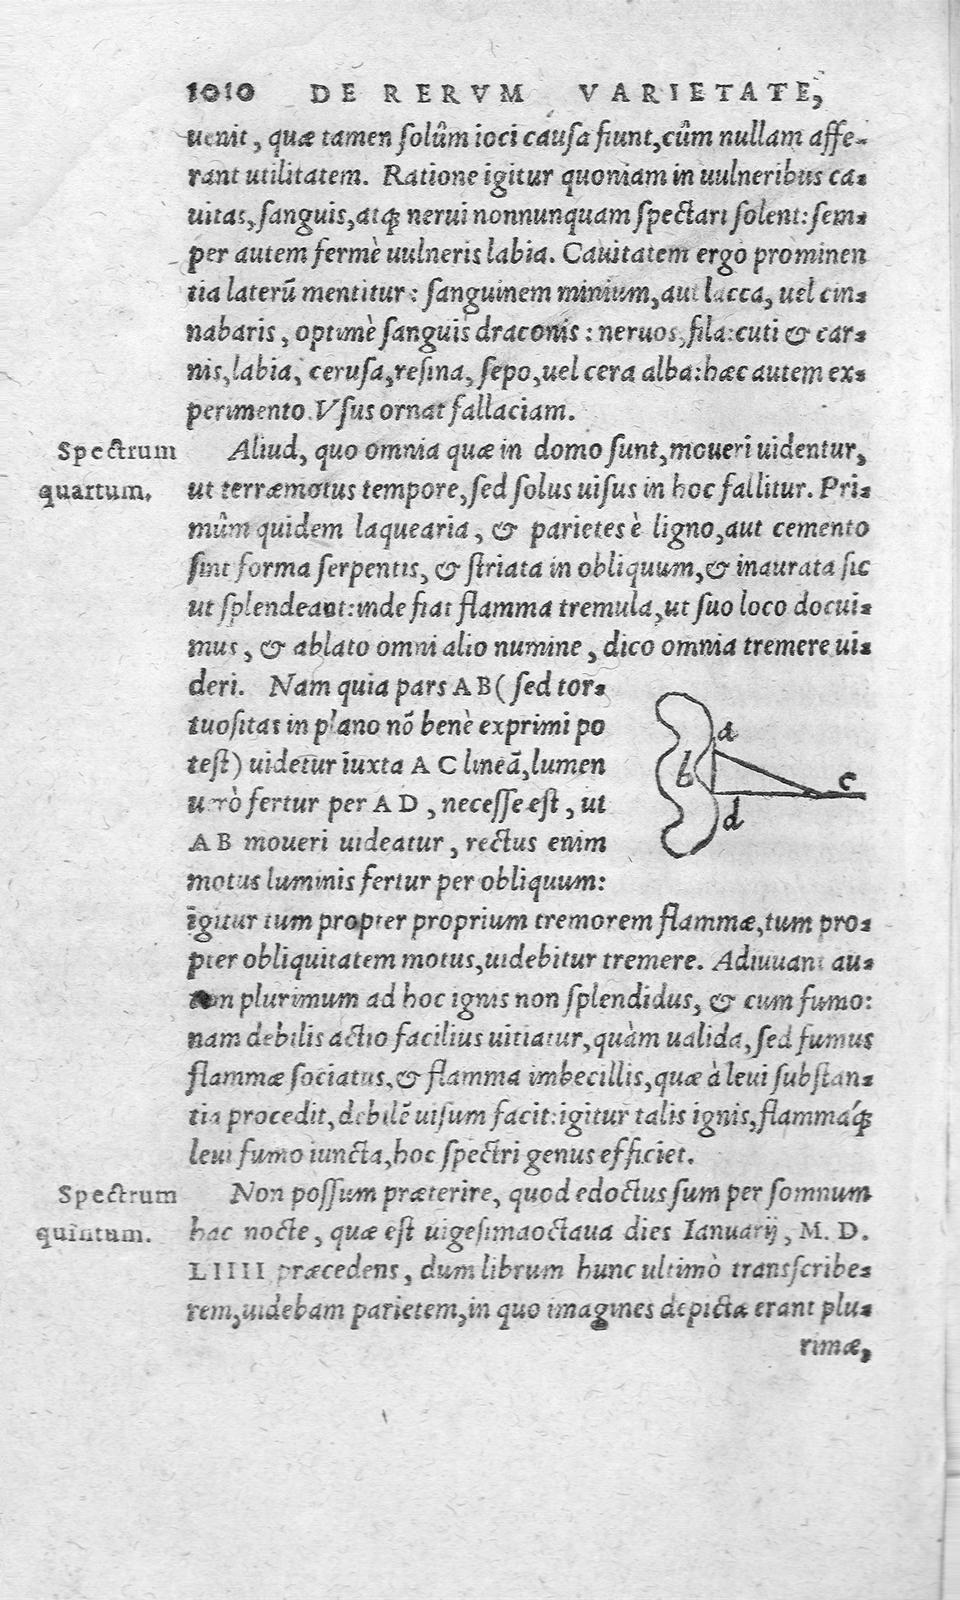 1010 DE RERVM VARIETATE,
uenit, quæ tamen ſolûm ioci cauſa fiunt, cûm nullam affe-
rant utilitatem. Ratione igitur quoniam in uulneribus ca-
uitas, ſanguis, atq; nerui nonnunquam ſpectari ſolent: ſem-
per autem fermè uulneris labia. Cauitatem ergo prominen
tia laterũ mentitur: ſanguinem minium, aut lacca, uel cin-
nabaris, optimè ſanguis draconis: neruos, fila: cuti & car-
nis, labia, ceruſa, reſina, ſepo, uel cera alba: hæc autem ex-
perimento. Vſus ornat fallaciam.
Spectrum quartum.
Aliud, quo omnia quæ in domo ſunt, moueri uidentur,
ut terræmotus tempore, ſed ſolus uiſus in hoc fallitur. Pri-
mûm quidem laquearia, & parietes è ligno, aut cemento
ſint forma ſerpentis, & ſtriata in obliquum, & inaurata ſic
ut ſplendeant: inde fiat flamma tremula, ut ſuo loco docui-
mus, & ablato omni alio numine, dico omnia tremere ui-
deri. Nam quia pars A B ( ſed tor-
tuoſitas in plano nõ benè exprimi po
teſt) uidetur iuxta A C lineã, lumen
uerò fertur per A D, neceſſe eſt, ut
A B moueri uideatur, rectus enim
motus luminis fertur per obliquum:
a
b
c
d
igitur tum propter proprium tremorem flammæ, tum pro-
pter obliquitatem motus, uidebitur tremere. Adiuuant au-
tem plurimum ad hoc ignis non ſplendidus, & cum fumo:
nam debilis actio facilius uitiatur, quàm ualida, ſed fumus
flammæ ſociatus, & flamma imbecillis, quæ à leui ſubſtan-
tia procedit, debilẽ uiſum facit: igitur talis ignis, flammáq;
leui fumo iuncta, hoc ſpectri genus efficiet.
Spectrum quintum.
Non poſſum præterire, quod edoctus ſum per ſomnum
hac nocte, quæ eſt uigeſimaoctaua dies Ianuarij, M. D.
LIIII præcedens, dum librum hunc ultimò tranſcribe-
rem, uidebam parietem, in quo imagines depictæ erant plu-
rimæ,